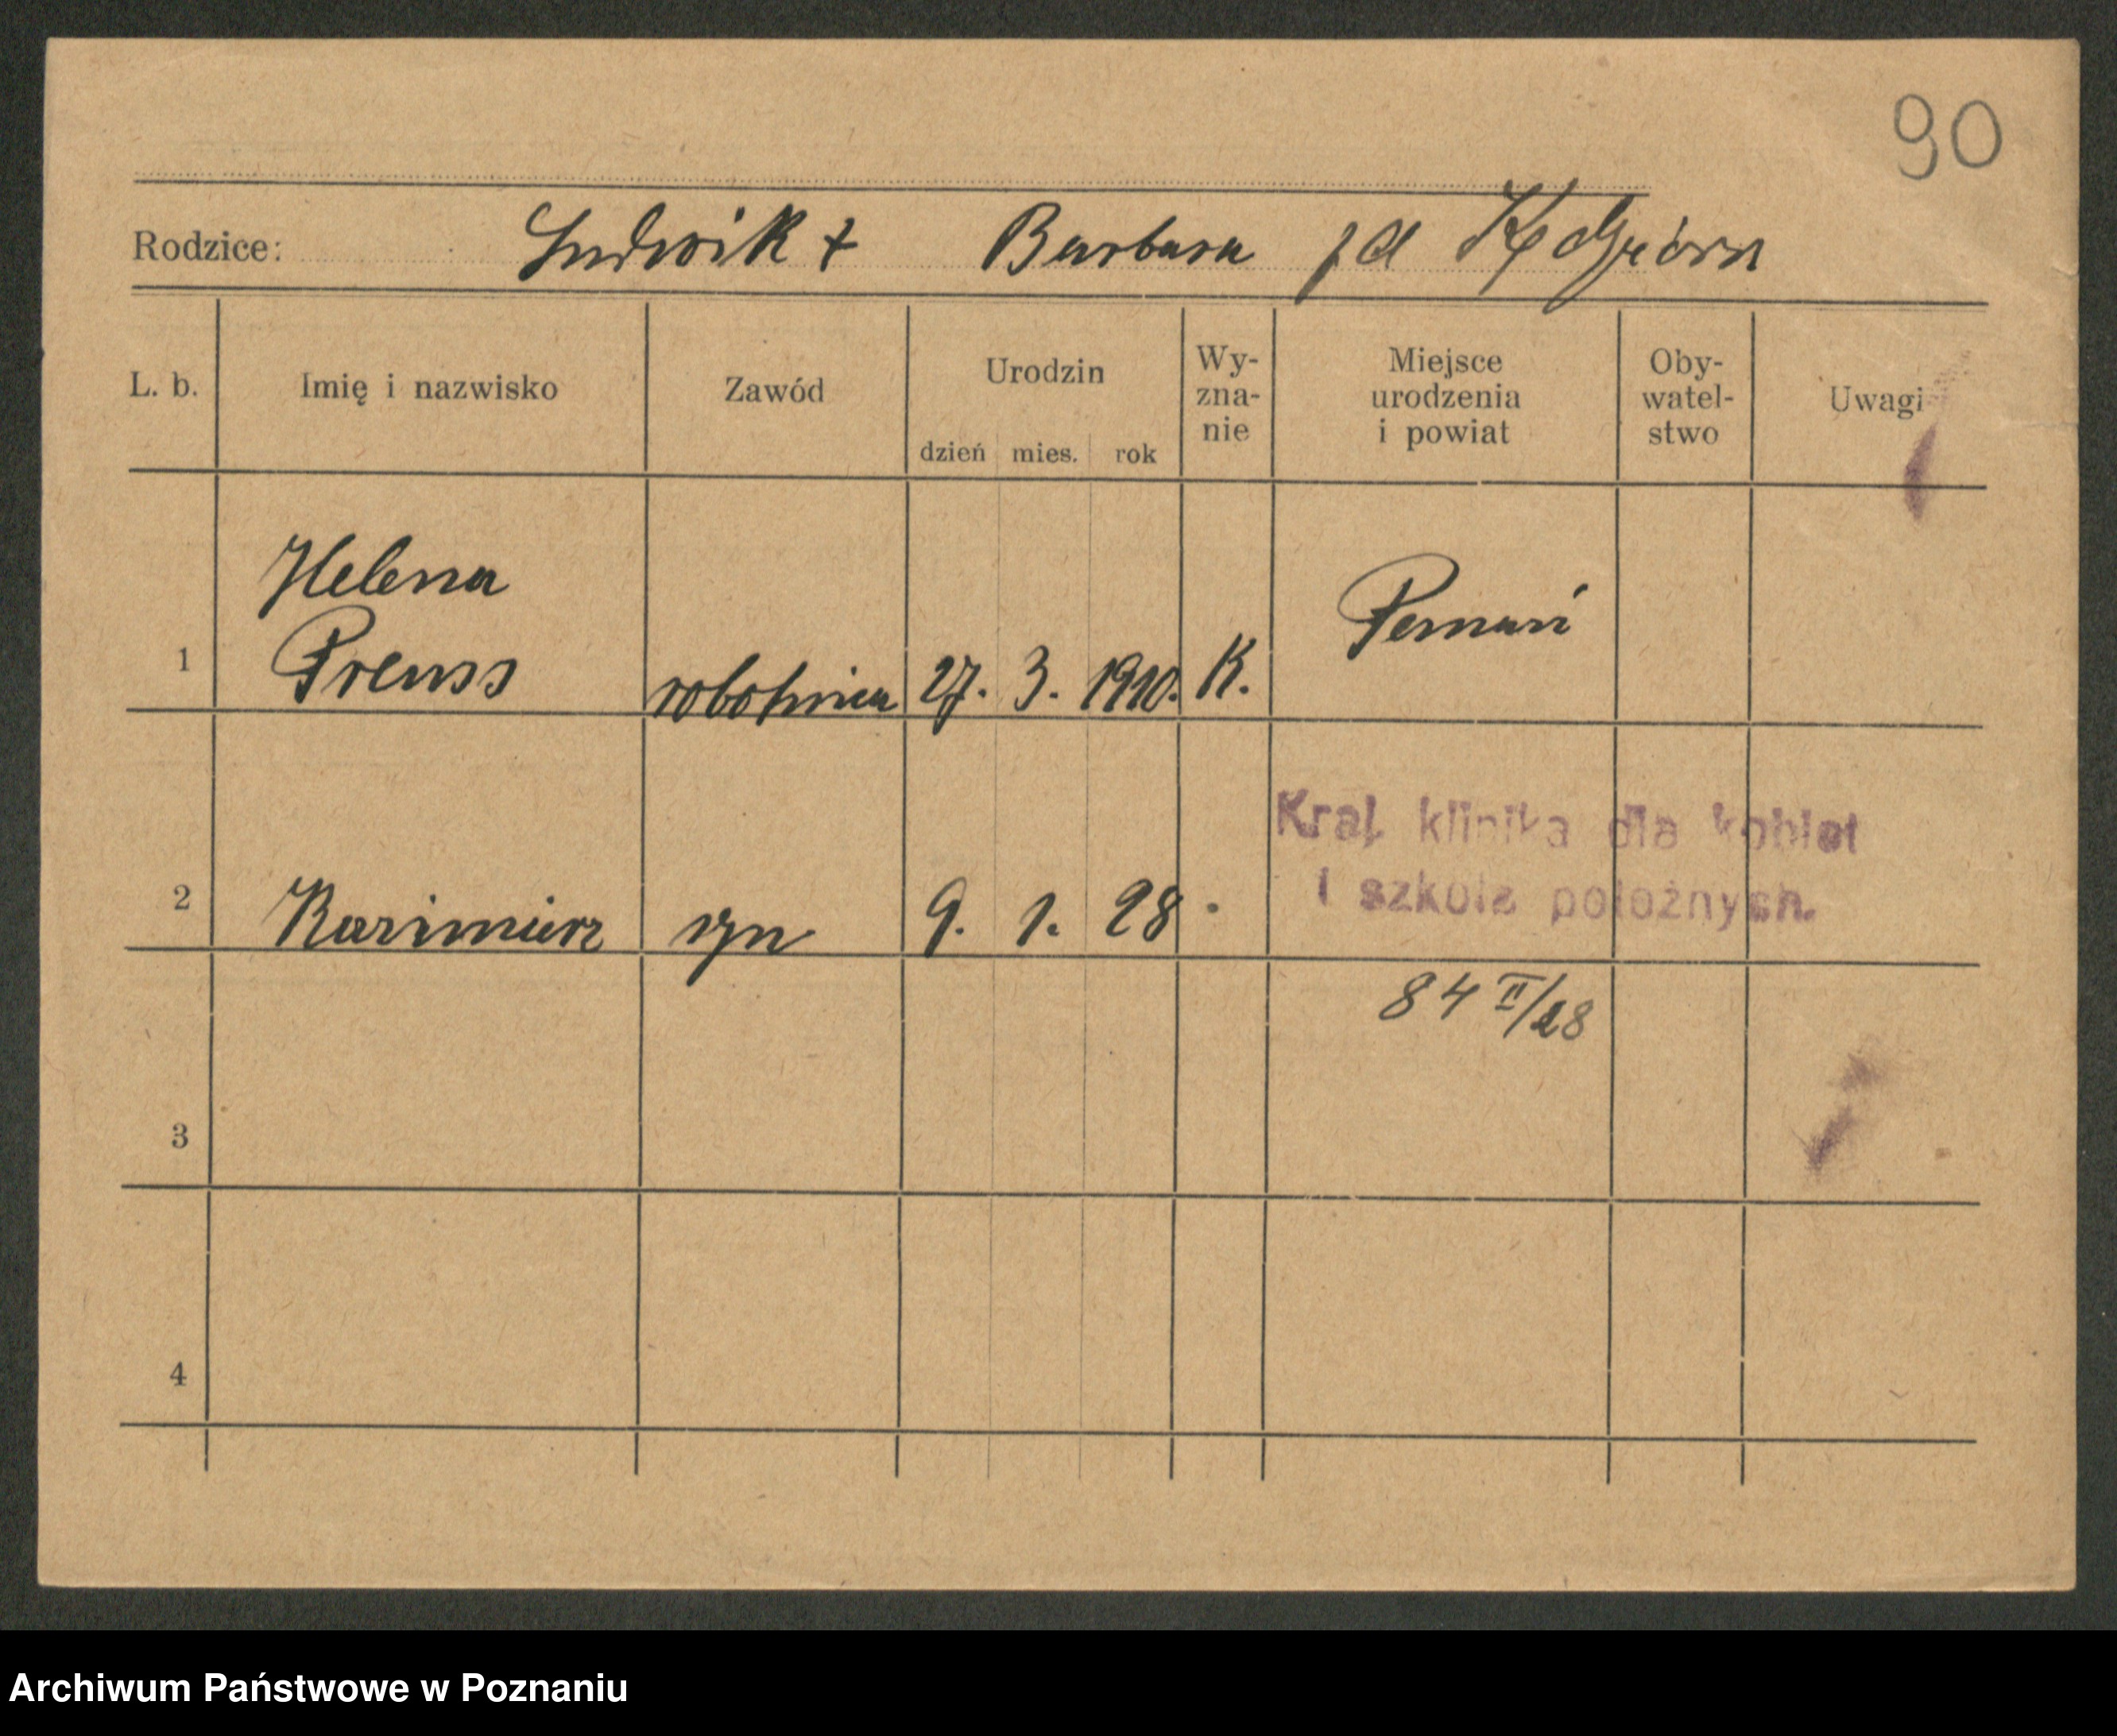 90
Rodzice: Ludwik + Barbara zd Kędziora
L. b.
Imię i nazwisko
Zawód
Urodzin
dzień mies. rok
Wy-
zna-
nie
Miejsce
urodzenia
i powiat
Oby-
watel-
stwo
Uwagi
1 Helena
Preuss robotnica 27. 3. 1910. K. Poznań
2 Kazimierz syn 9. 1. 28
Kraj. klinika dla kobiet
i szkoła położnych.
84 II/28
3
4
Archiwum Państwowe w Poznaniu